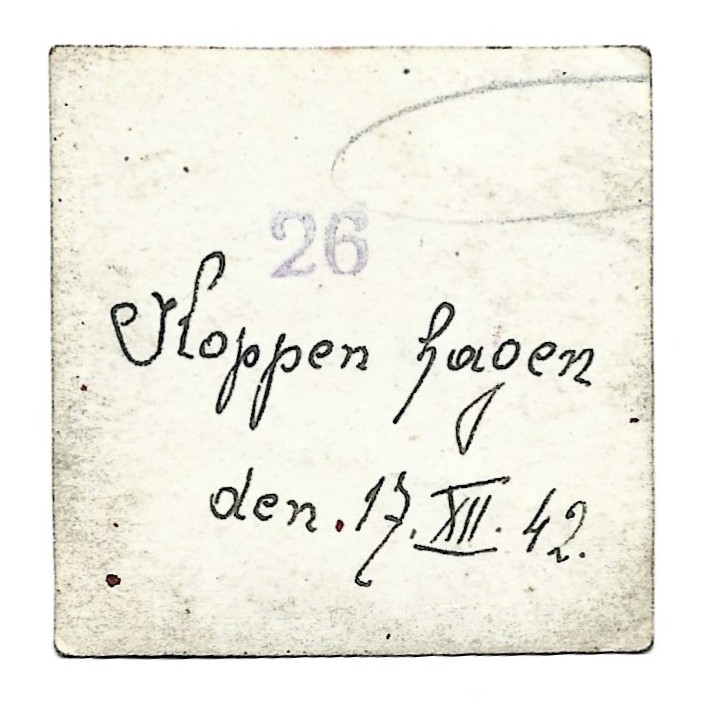 26
Koppen hagen
den. 17. XII. 42.